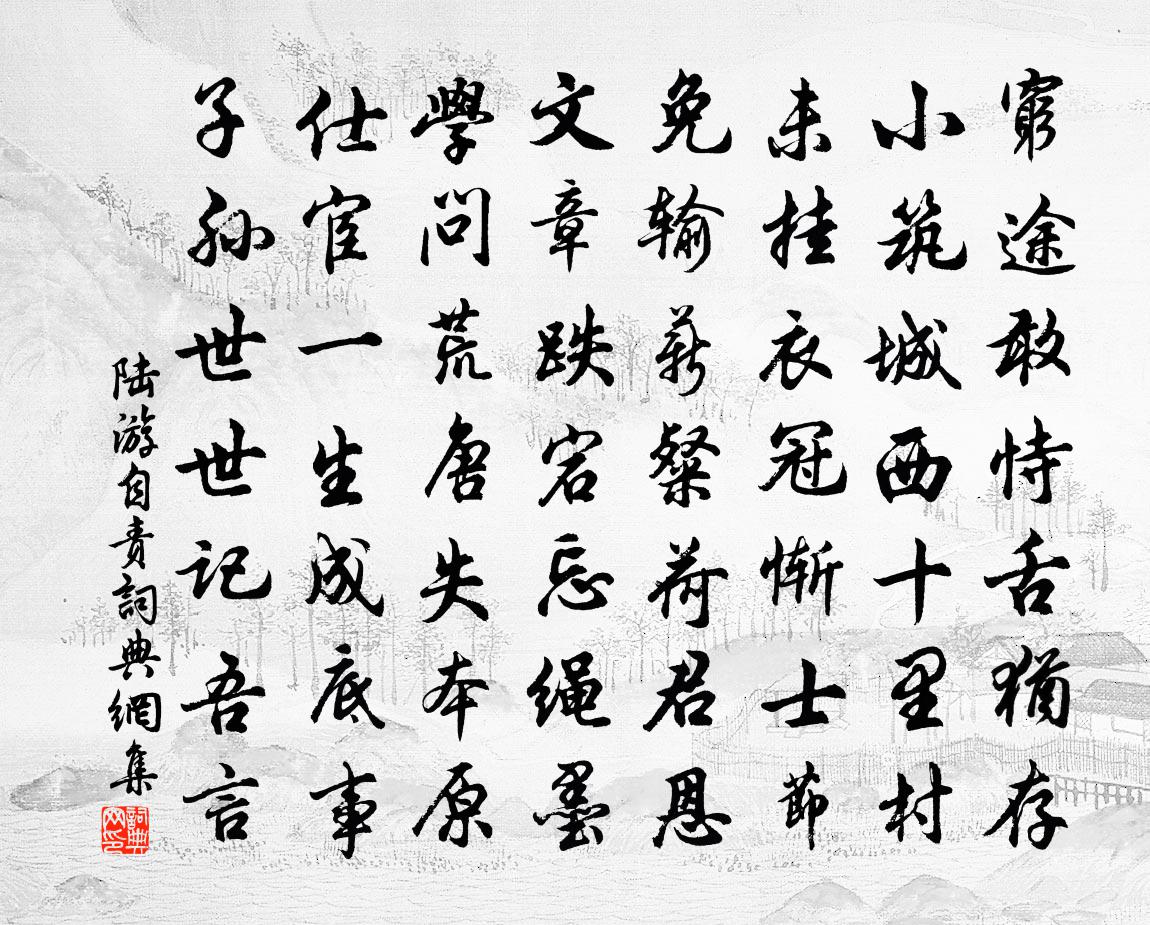 窮途敢恃舌猶存
小筑城西十里村
未挂衣冠慚士節
免输薪粲荷君恩
文章跌宕忘绳墨
學問荒唐失本原
仕宦一生成底事
子孙世世记吾言
陆游自责詞典網集
詞典网印